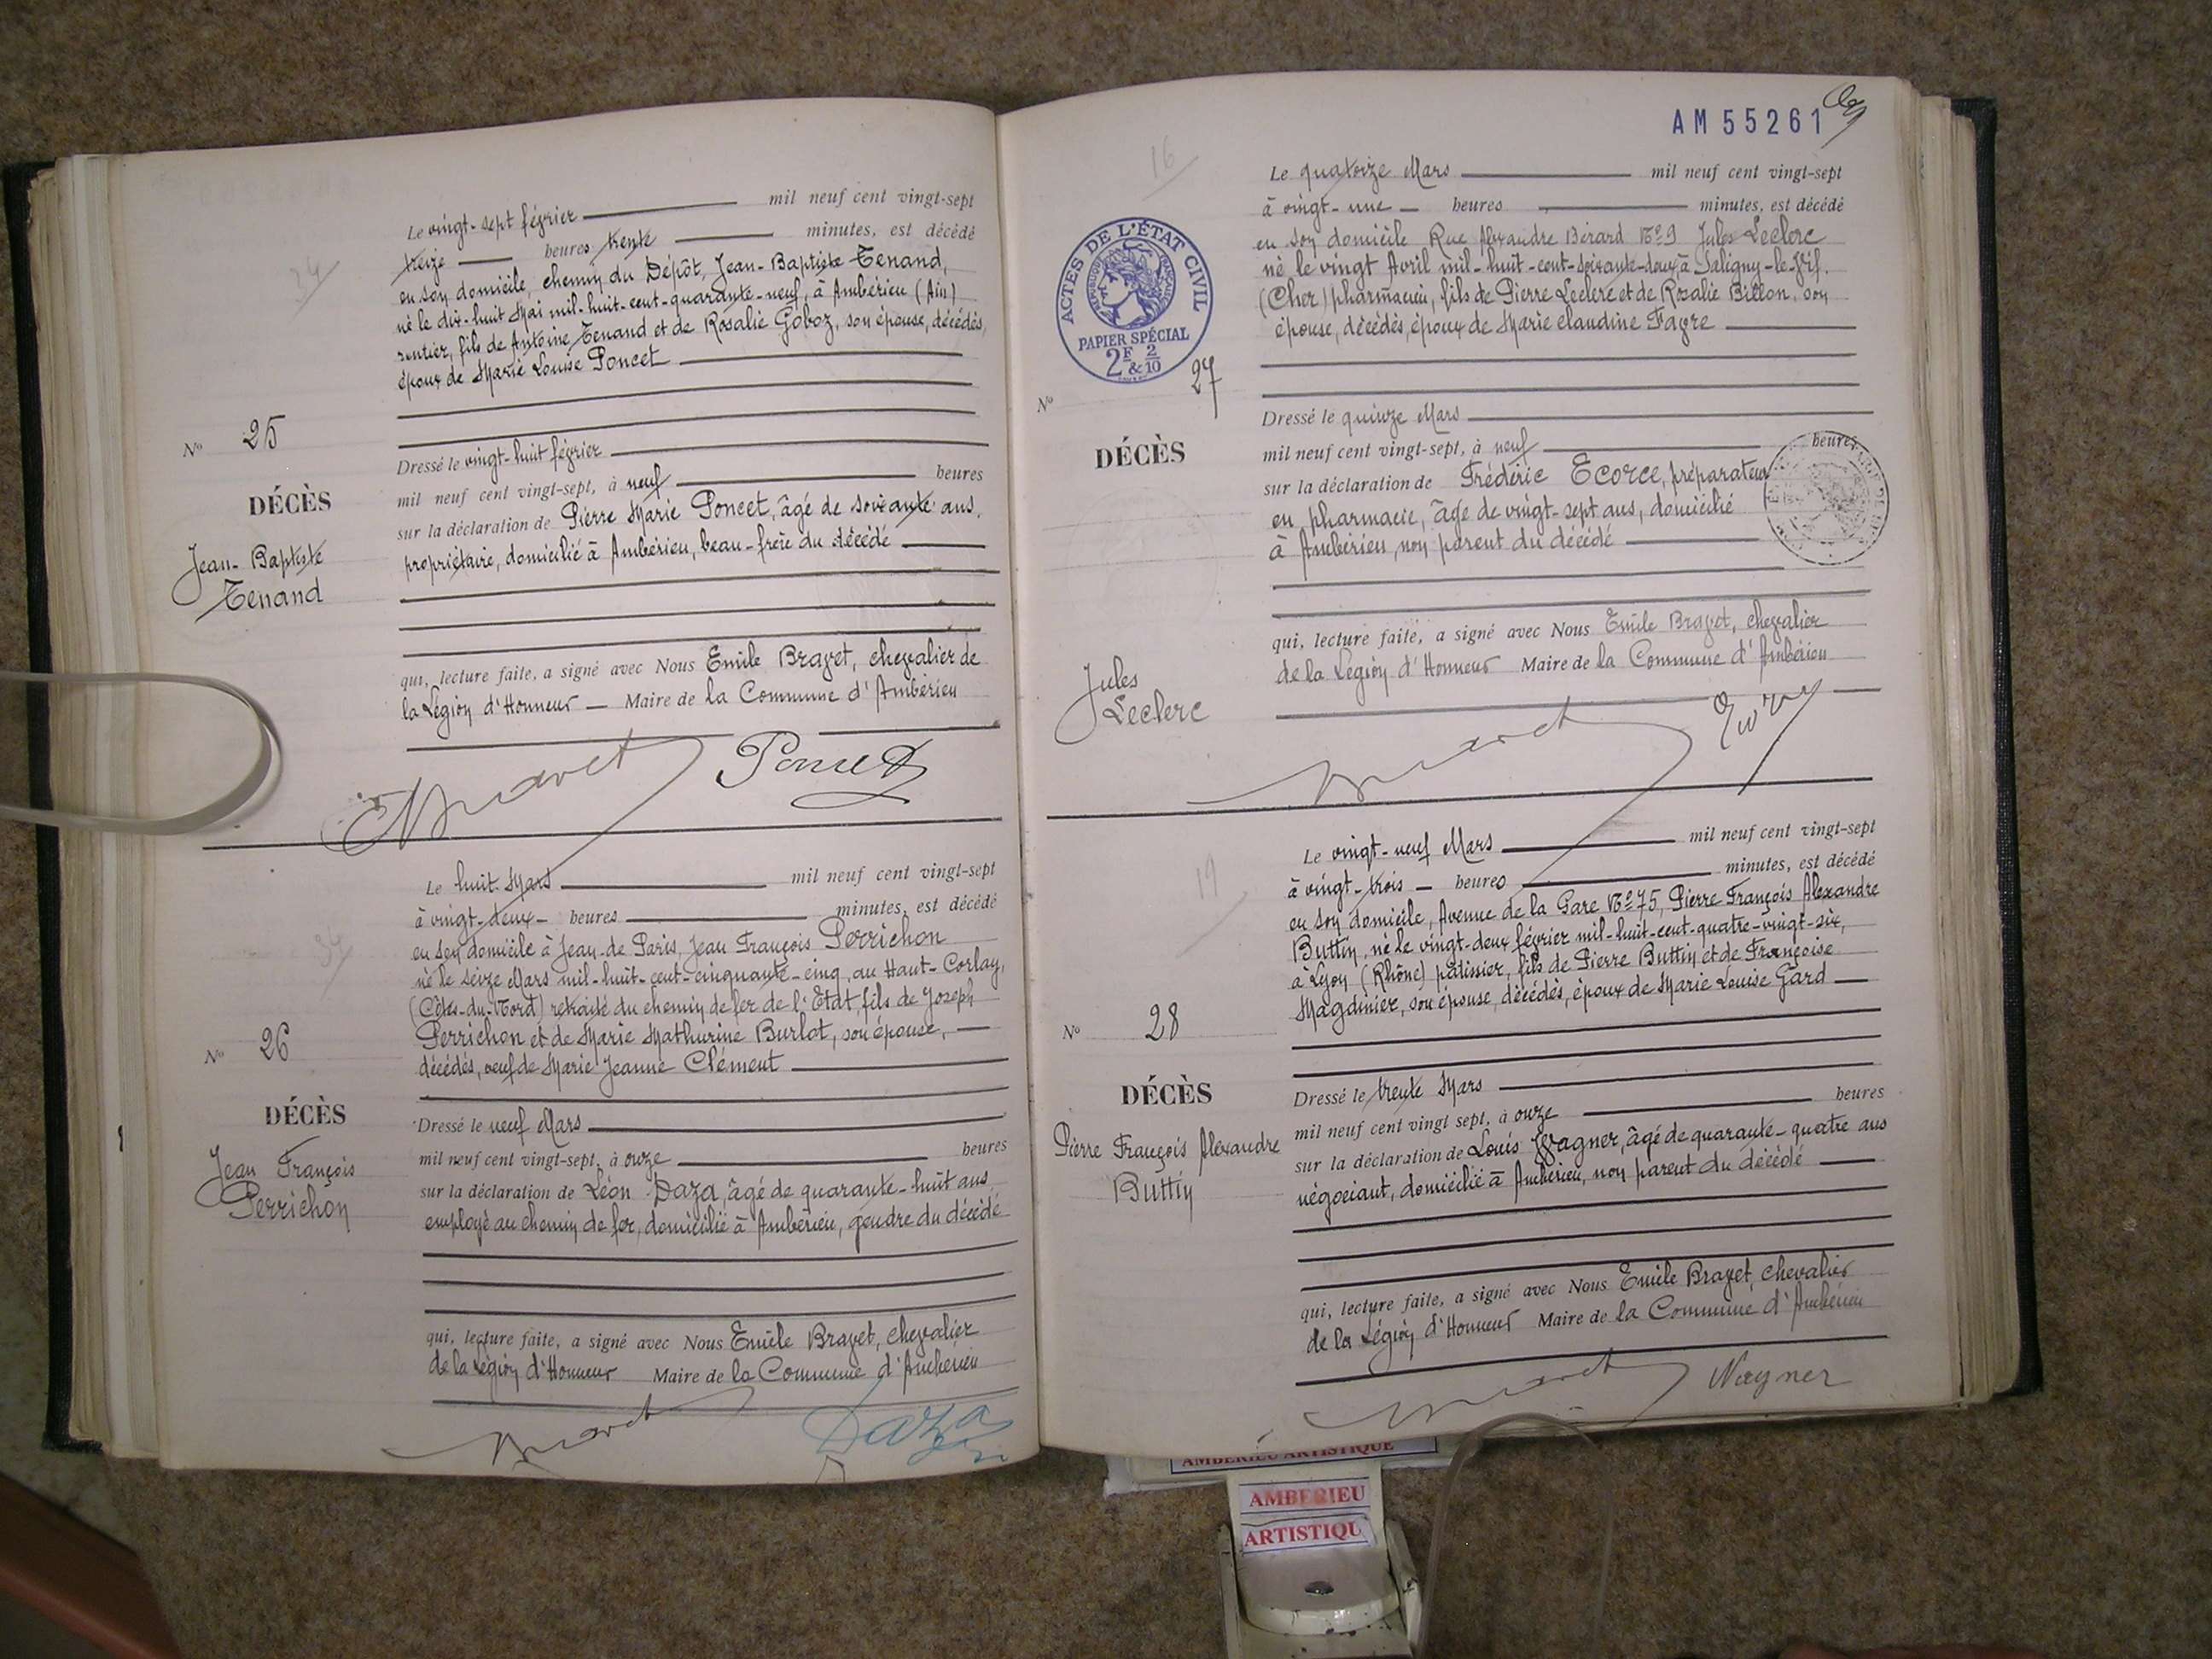 Le vingt-sept février mil neuf cent vingt-sept
treize heures trente minutes, est décédé
en son domicile, chemin du Dépôt, Jean-Baptiste Tenand,
né le dix-huit Mai mil-huit-cent-quarante-neuf, à Ambérieu (Ain)
rentier, fils de Antoine Tenand et de Rosalie Goboz, son épouse, décédés,
époux de Marie Louise Poncet
Nº 25
Dressé le vingt-huit février
mil neuf cent vingt-sept, à neuf heures
DÉCÈS
sur la déclaration de Pierre Marie Poncet, âgé de soixante ans,
propriétaire, domicilié à Ambérieu, beau-frère du décédé
Jean-Baptiste
Tenand
qui, lecture faite, a signé avec Nous Emile Bravet, chevalier de
la Légion d'Honneur — Maire de la Commune d'Ambérieu
EBravet Poncet
Le huit Mars mil neuf cent vingt-sept
à vingt-deux heures minutes, est décédé
en son domicile à Jean-de Paris, Jean François Perrichon
né le seize Mars mil-huit-cent-cinquante-cinq, au Haut-Corlay,
(Côtes-du-Nord) retraité du chemin de fer de l'Etat, fils de Joseph
Perrichon et de Marie Mathurine Burlot, son épouse,
décédés, veuf de Marie Jeanne Clément
Nº 26
DÉCÈS
Dressé le neuf Mars
mil neuf cent vingt-sept, à onze heures
Jean François
Perrichon
sur la déclaration de Léon Daza, âgé de quarante-huit ans,
employé au chemin de fer, domicilié à Ambérieu, gendre du décédé
qui, lecture faite, a signé avec Nous Emile Bravet, chevalier
de la Légion d'Honneur Maire de la Commune d'Ambérieu
Bravet Daza
AM 55261
16
Le quatorze Mars mil neuf cent vingt-sept
à vingt-une heures minutes, est décédé
en son domicile Rue Alexandre Bérard Nº 9 Jules Leclerc
né le vingt Avril mil-huit-cent-soixante-deux à Saligny-le-Vif.
(Cher) pharmacien, fils de Pierre Leclerc et de Rosalie Billon, son
épouse, décédés, époux de Marie Claudine Favre
ACTES DE L'ÉTAT CIVIL
RÉPUBLIQUE FRANÇAISE
PAPIER SPÉCIAL
2F & 2/10
Nº 27
DÉCÈS
Dressé le quinze Mars
mil neuf cent vingt-sept, à neuf heures
sur la déclaration de Frédéric Ecorce, préparateur
en pharmacie, âgé de vingt-sept ans, domicilié
à Ambérieu, non parent du décédé
Jules
Leclerc
qui, lecture faite, a signé avec Nous Emile Bravet, chevalier
de la Légion d'Honneur Maire de la Commune d'Ambérieu
Bravet
19
Le vingt-neuf Mars mil neuf cent vingt-sept
à vingt-trois heures minutes, est décédé
en son domicile, Avenue de la Gare Nº 75, Pierre François Alexandre
Buttin, né le vingt-deux février mil-huit-cent-quatre-vingt-six,
à Lyon (Rhône) pâtissier, fils de Pierre Buttin et de Françoise
Magdinier, son épouse, décédés, époux de Marie Louise Gard
Nº 28
DÉCÈS
Dressé le trente Mars
mil neuf cent vingt sept, à onze heures
Pierre François Alexandre
Buttin
sur la déclaration de Louis Wagner, âgé de quarante-quatre ans
négociant, domicilié à Ambérieu, non parent du décédé
qui, lecture faite, a signé avec Nous Emile Bravet, chevalier
de la Légion d'Honneur Maire de la Commune d'Ambérieu
Bravet Wagner
AMBERIEU ARTISTIQUE
AMBERIEU
ARTISTIQU